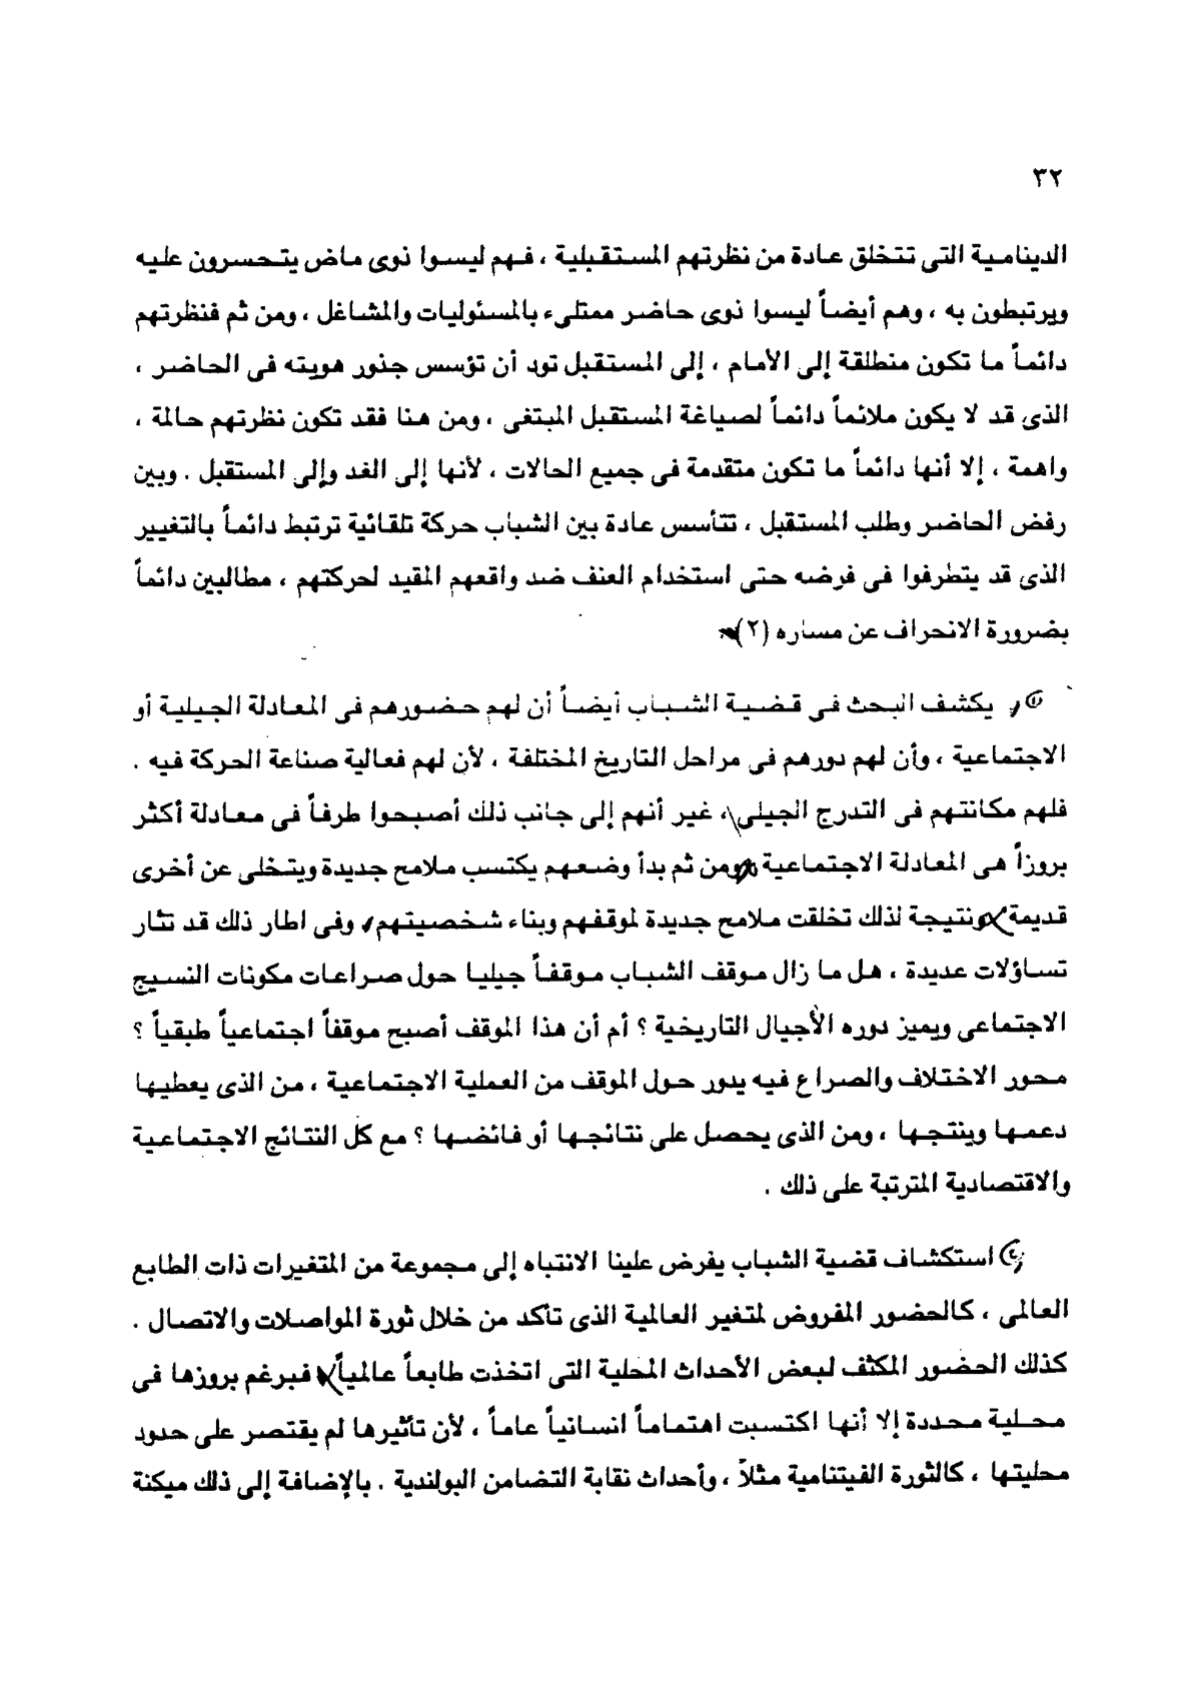 ٣٢
الدينامية التى تتخلق عادة من نظرتهم المستقبلية ، فهم ليسوا نوى ماض يتحسرون عليه
ويرتبطون به ، وهم أيضاً ليسوا نوى حاضر ممتلىء بالمسئوليات والمشاغل ، ومن ثم فنظرتهم
دائماً ما تكون منطلقة إلى الأمام ، إلى المستقبل تود أن تؤسس جذور هويته فى الحاضر ،
الذى قد لا يكون ملائماً دائماً لصياغة المستقبل المبتغى ، ومن هنا فقد تكون نظرتهم حالمة ،
واهمة ، إلا أنها دائماً ما تكون متقدمة فى جميع الحالات ، لأنها إلى الغد وإلى المستقبل . وبين
رفض الحاضر وطلب المستقبل ، تتأسس عادة بين الشباب حركة تلقائية ترتبط دائماً بالتغيير
الذى قد يتطرفوا فى فرضه حتى استخدام العنف ضد واقعهم المقيد لحركتهم ، مطالبين دائماً
بضرورة الانحراف عن مساره (٢)
يكشف البحث فى قضية الشباب أيضاً أن لهم حضورهم فى المعادلة الجيلية أو
الاجتماعية ، وأن لهم دورهم فى مراحل التاريخ المختلفة ، لأن لهم فعالية صناعة الحركة فيه .
فلهم مكانتهم فى التدرج الجيلى ، غير أنهم إلى جانب ذلك أصبحوا طرفاً فى معادلة أكثر
بروزاً هى المعادلة الاجتماعية ومن ثم بدأ وضعهم يكتسب ملامح جديدة ويتخلى عن أخرى
قديمة ونتيجة لذلك تخلقت ملامح جديدة لموقفهم وبناء شخصيتهم ، وفى اطار ذلك قد تثار
تساؤلات عديدة ، هل ما زال موقف الشباب موقفاً جيليا حول صراعات مكونات النسيج
الاجتماعى ويميز دوره الأجيال التاريخية ؟ أم أن هذا الموقف أصبح موقفاً اجتماعياً طبقياً ؟
محور الاختلاف والصراع فيه يدور حول الموقف من العملية الاجتماعية ، من الذى يعطيها
دعمها وينتجها ، ومن الذى يحصل على نتائجها أو فائضها ؟ مع كل النتائج الاجتماعية
والاقتصادية المترتبة على ذلك .
استكشاف قضية الشباب يفرض علينا الانتباه إلى مجموعة من المتغيرات ذات الطابع
العالمى ، كالحضور المفروض لمتغير العالمية الذى تأكد من خلال ثورة المواصلات والاتصال .
كذلك الحضور المكثف لبعض الأحداث المحلية التى اتخذت طابعاً عالمياً فبرغم بروزها فى
محلية محددة إلا أنها اكتسبت اهتماماً انسانياً عاماً ، لأن تأثيرها لم يقتصر على حدود
محليتها ، كالثورة الفيتنامية مثلاً ، وأحداث نقابة التضامن البولندية . بالإضافة إلى ذلك ميكنة